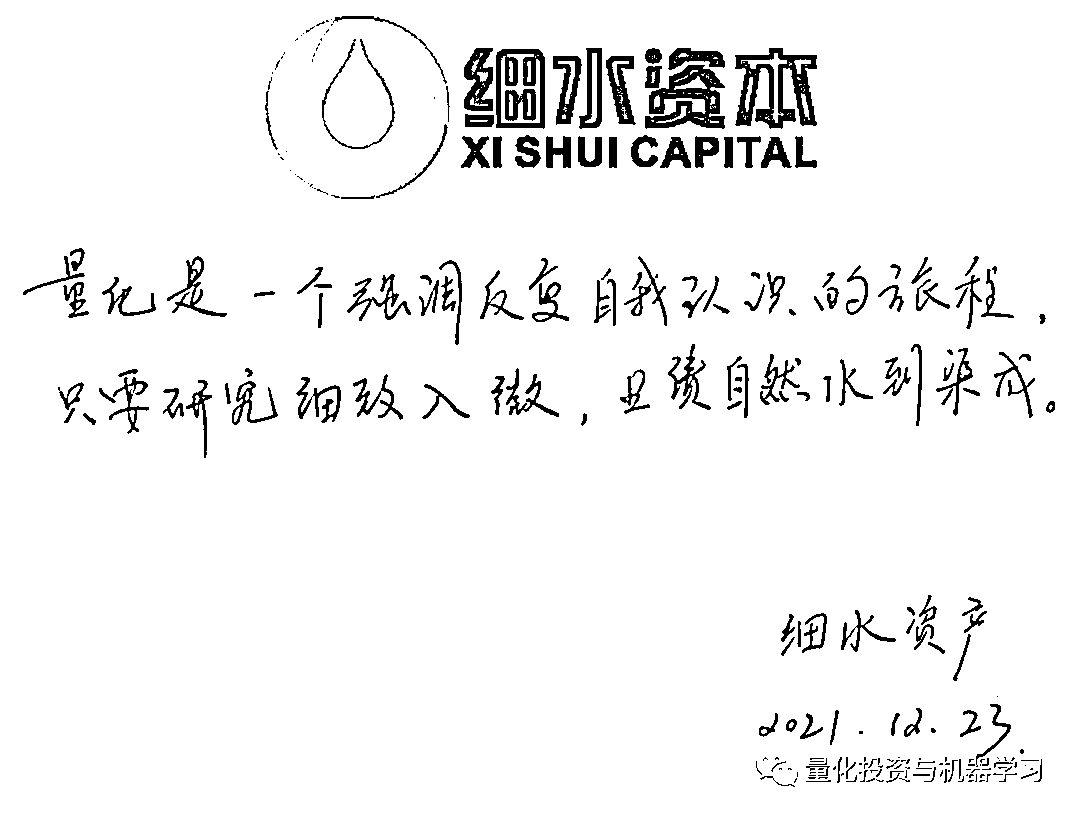 细水资本
XI SHUI CAPITAL
量化是一个强调反复自我认识的旅程，
只要研究细致入微，业绩自然水到渠成。
细水资产
2021.12.23.
量化投资与机器学习